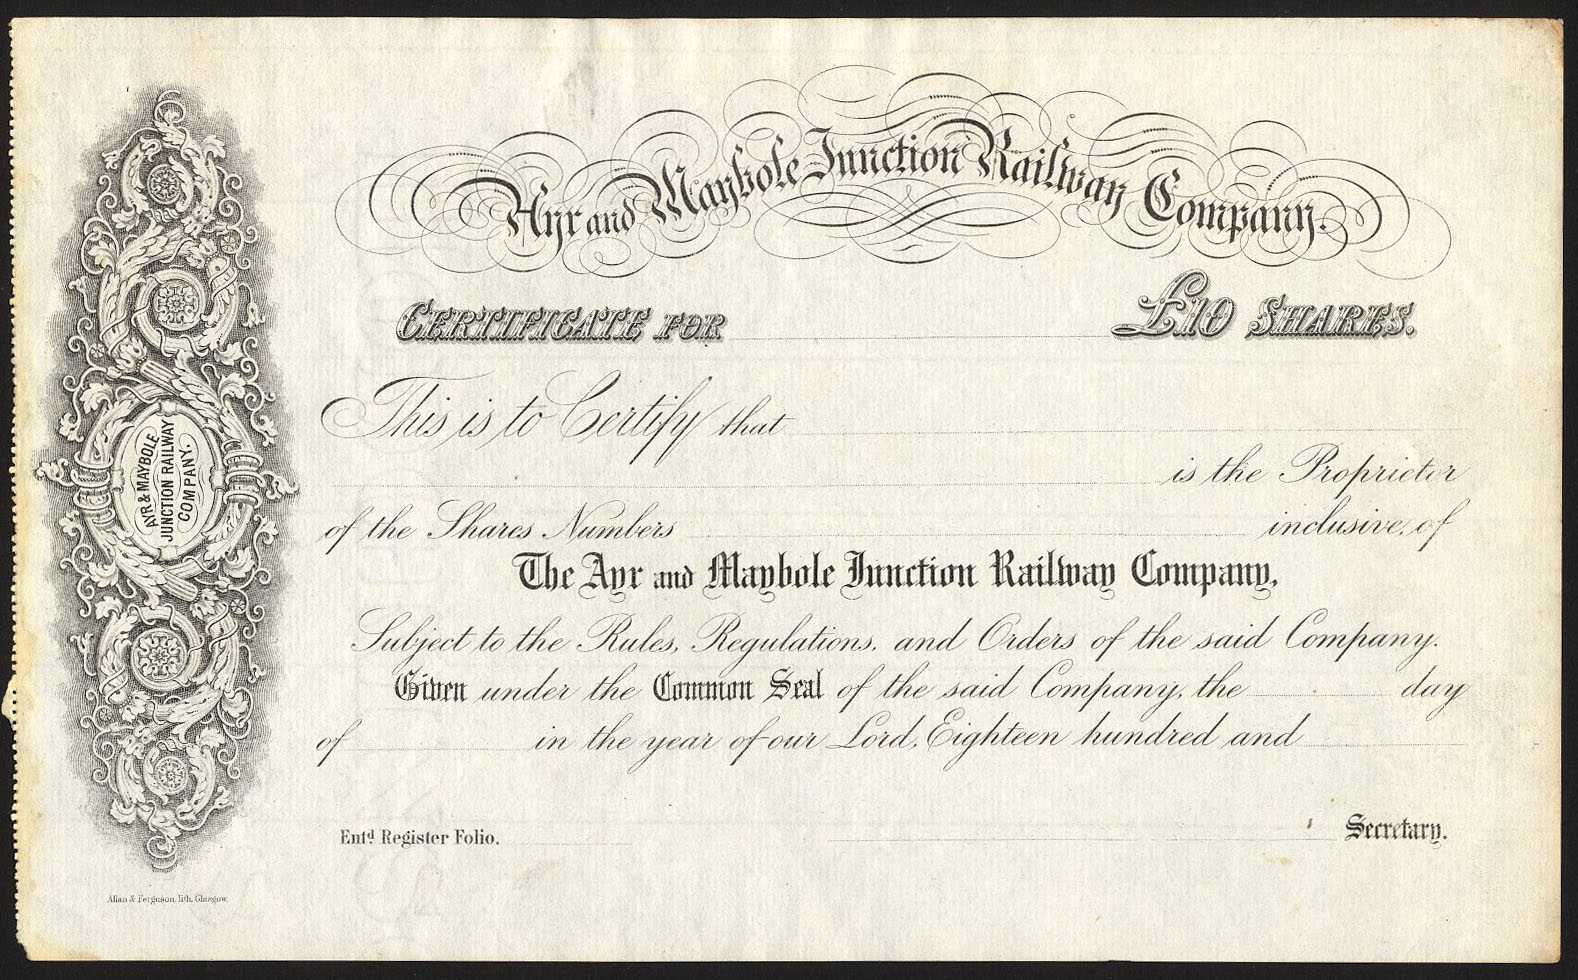 Ayr and Maybole Junction Railway Company.
CERTIFICATE FOR £10 SHARES.
This is to Certify that
is the Proprietor
of the Shares Numbers inclusive, of
The Ayr and Maybole Junction Railway Company,
Subject to the Rules, Regulations, and Orders of the said Company.
Given under the Common Seal of the said Company, the day
of in the year of our Lord, Eighteen hundred and
Entd Register Folio.
Secretary.
AYR & MAYBOLE
JUNCTION RAILWAY
COMPANY.
Allan & Ferguson, lith, Glasgow.